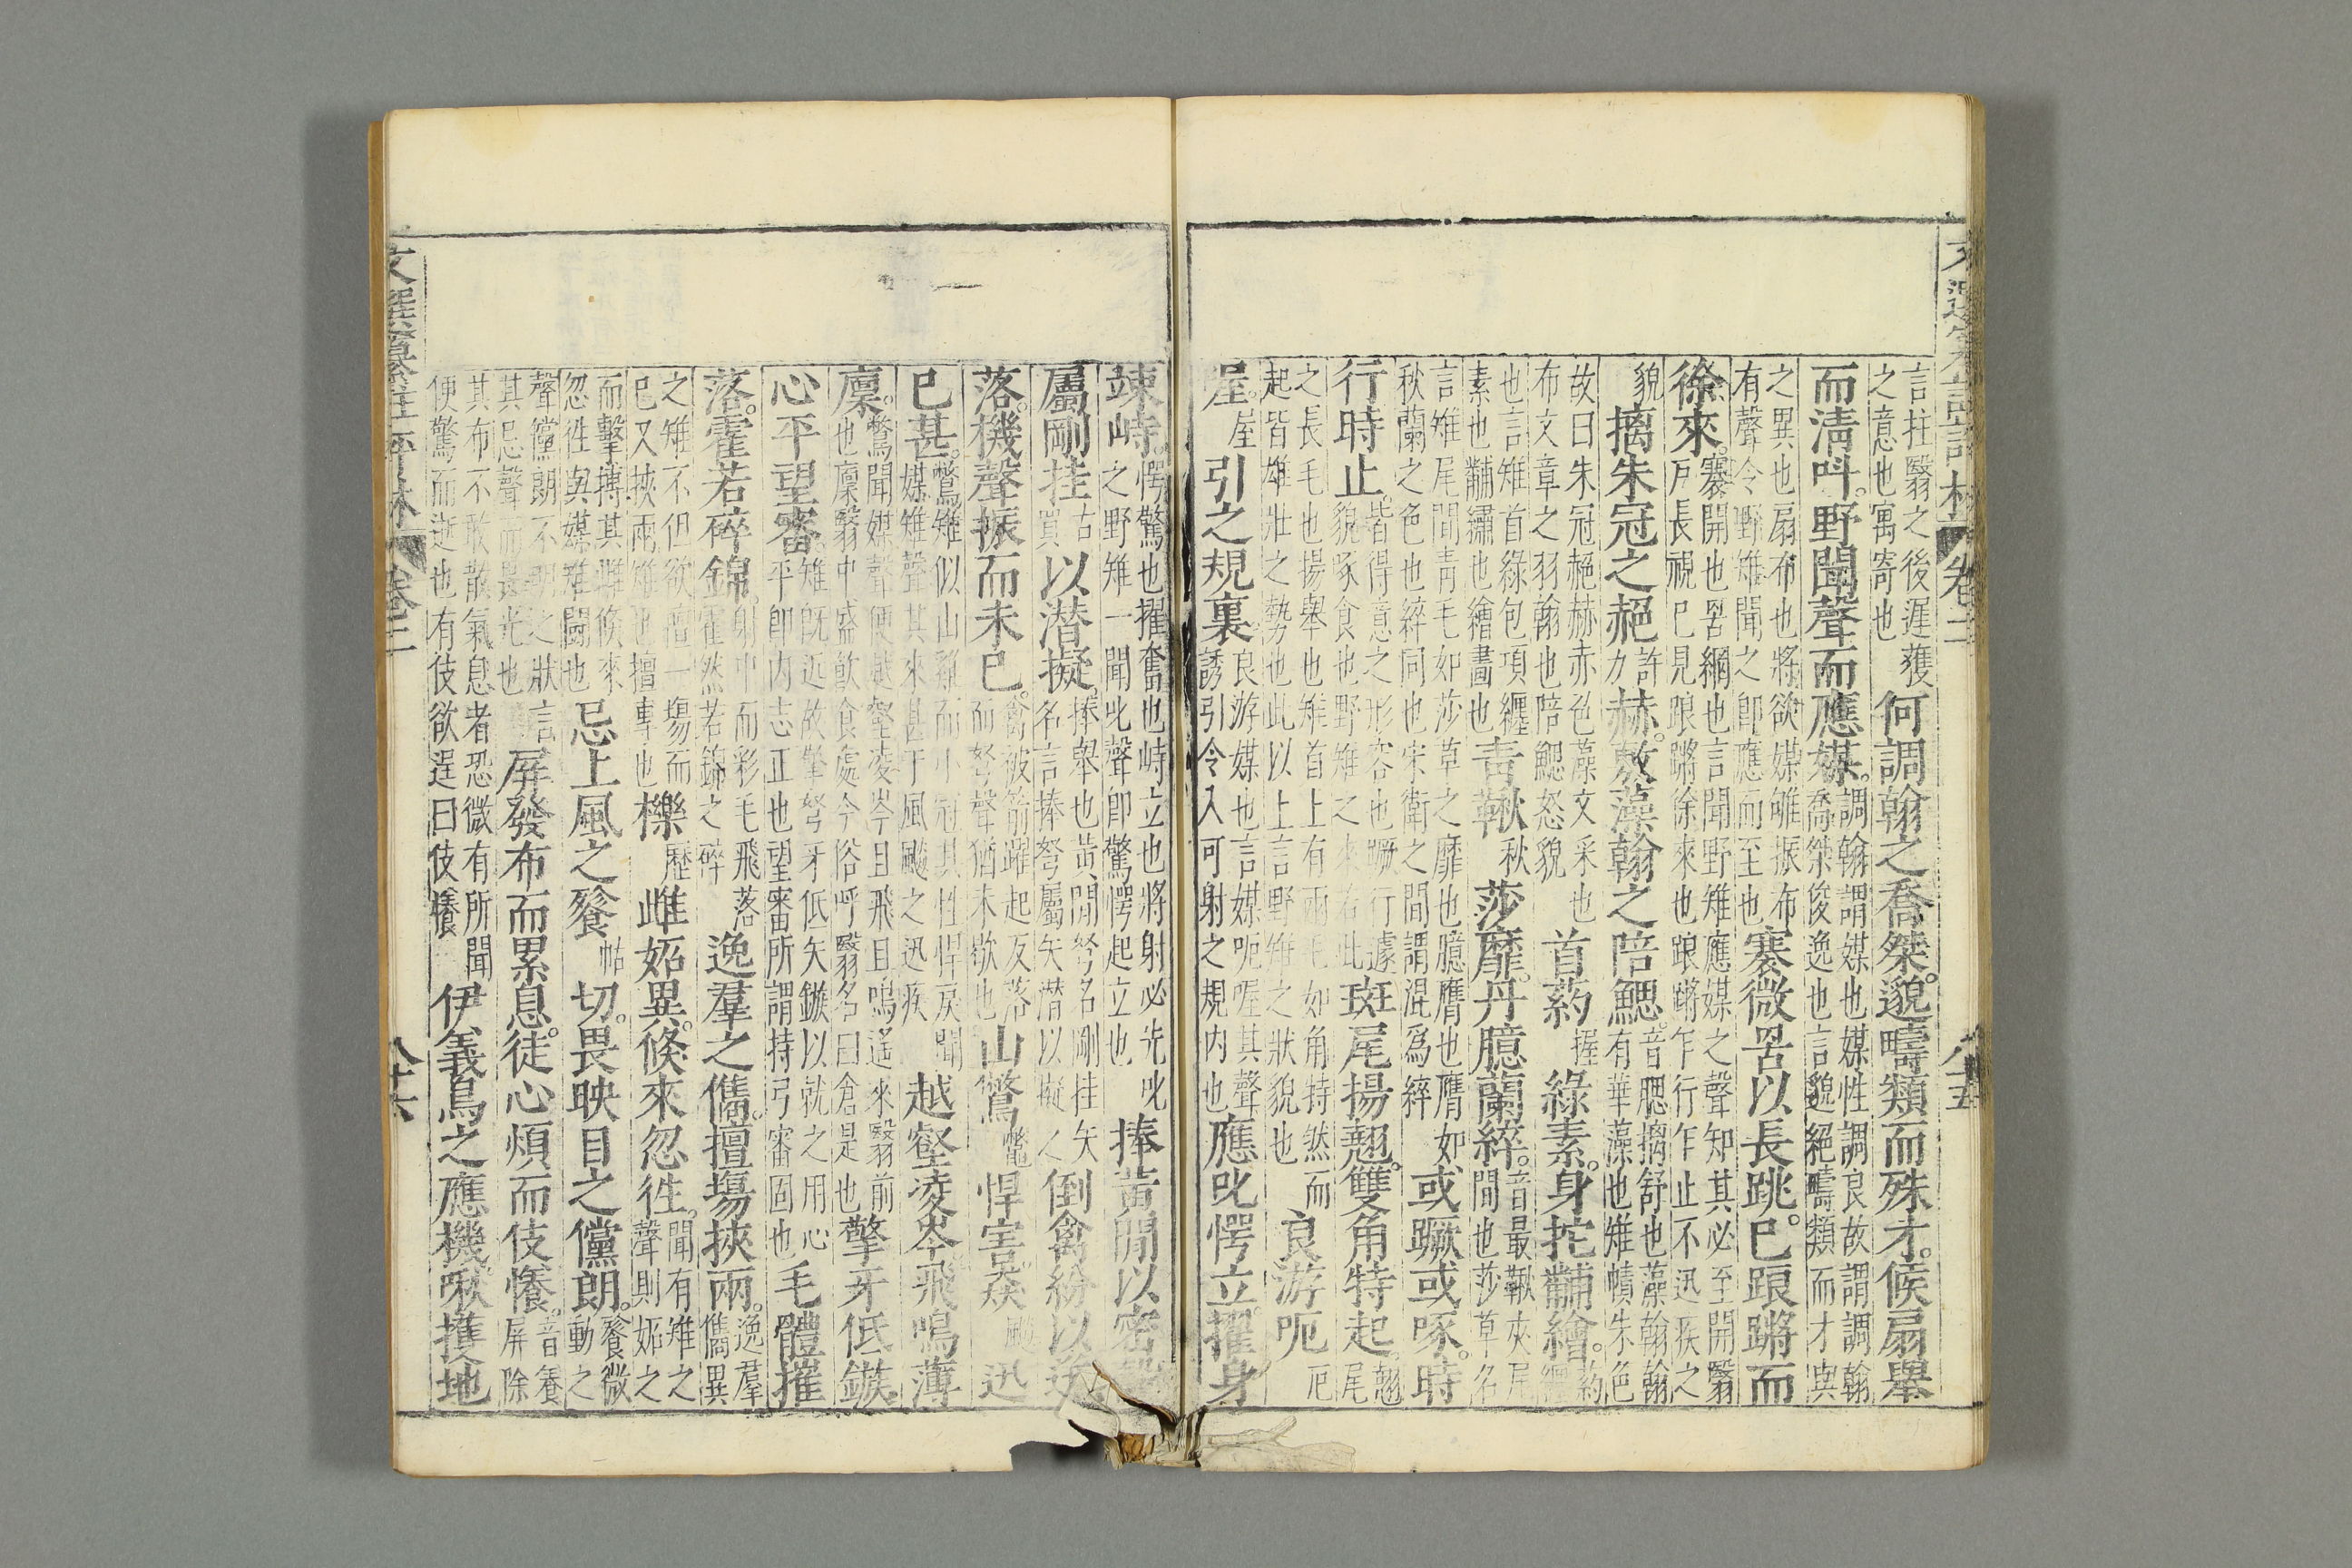 言拄翳之後遲獲
之意也寓寄也
何調翰之喬桀邈疇類而殊才候扇舉
而清呌野聞聲而應媒
調翰謂媒也媒性調良故謂調翰
喬桀俊逸也言邈絕疇類而才與
之異也扇布也將欲媒雊振布
有聲令野雉聞之卽應而至也
褰微罟以長眺巳踉蹡而
徐來
褰開也罟網也言聞野雉應媒之聲知其必至開翳
戶長視巳見踉蹡徐來也踉蹡乍行乍止不迅疾之
貌
摛朱冠之赩
許力
赫敷藻翰之陪鰓
音腮摛舒也藻翰翰
有華藻也雉幘朱色
故曰朱冠赩赫赤色藻文采也
布文章之羽翰也陪鰓怒貌
首葯
握
綠素身拕黼繪
葯纒
也言雉首綠包項纒
素也黼繡也繪畫也
靑鞦
秋
莎靡丹臆蘭綷
音最鞦夾尾
間也莎草名
言雉尾間靑毛如莎草之靡也臆膺也膺如
秋蘭之色也綷同也宋衛之間謂混爲綷
或蹶或啄時
行時止
皆得意之形容也蹶行遽
貌啄食也野雉之來若此
斑尾揚翹雙角特起
翹尾
之長毛也揚舉也雉首上有兩毛如角特然而
起皆雄壯之勢也此以上言野雉之狀貌也
良游呃
厄
喔
屋
引之規裏
良游媒也言媒呃喔其聲
誘引令入可射之規内也
應叱愕立擢身
竦峙
愕驚也擢奮也峙立也將射必先叱
之野雉一聞叱聲卽驚愕起立也
捧黃閒以密彀
屬剛挂
古賣
以潛擬
捧舉也黃閒弩名剛挂矢
名言捧弩屬矢潛以擬之
倒禽紛以迸
落機聲振而未巳
禽被箭躍起反落
而弩聲猶未歇也
山鷩
鼈
悍害猋
飈
迅
巳甚
鷩雉似山雞而小冠其性悍戾聞
媒雉聲其來甚于風飈之迅疾
越壑凌岑飛鳴薄
廩
鷩聞媒聲便越壑凌岑且飛且鳴逕來翳前
也廩翳中盛飲食處今俗呼翳名曰倉是也
擎牙低鏃
心平望審
雉旣近故擎弩牙低矢鏃以就之用心
平卽内志正也望審所謂持弓審固也
毛體摧
落霍若碎錦
射中而彩毛飛落
霍然若錦之碎
逸羣之儁擅塲挾兩
逸羣
儁異
之雉不但欲擅一塲而
巳又挾兩雉也擅專也
櫟
歷
雌妬異倏來忽徃
聞有雉之
聲則妬之
而擊搏其雌倏來
忽徃與媒雉鬪也
忌上風之餮
帖
切畏映目之儻朗
餮微
動之
聲儻朗不明之狀言
其忌聲而畏光也
屏發布而累息徒心煩而伎懩
音養
屏除
其布不敢散氣息者恐微有所聞
便驚而逝也有伎欲逞曰伎懩
伊義鳥之應機啾擭地
卷二
八十五
卷二
八十六